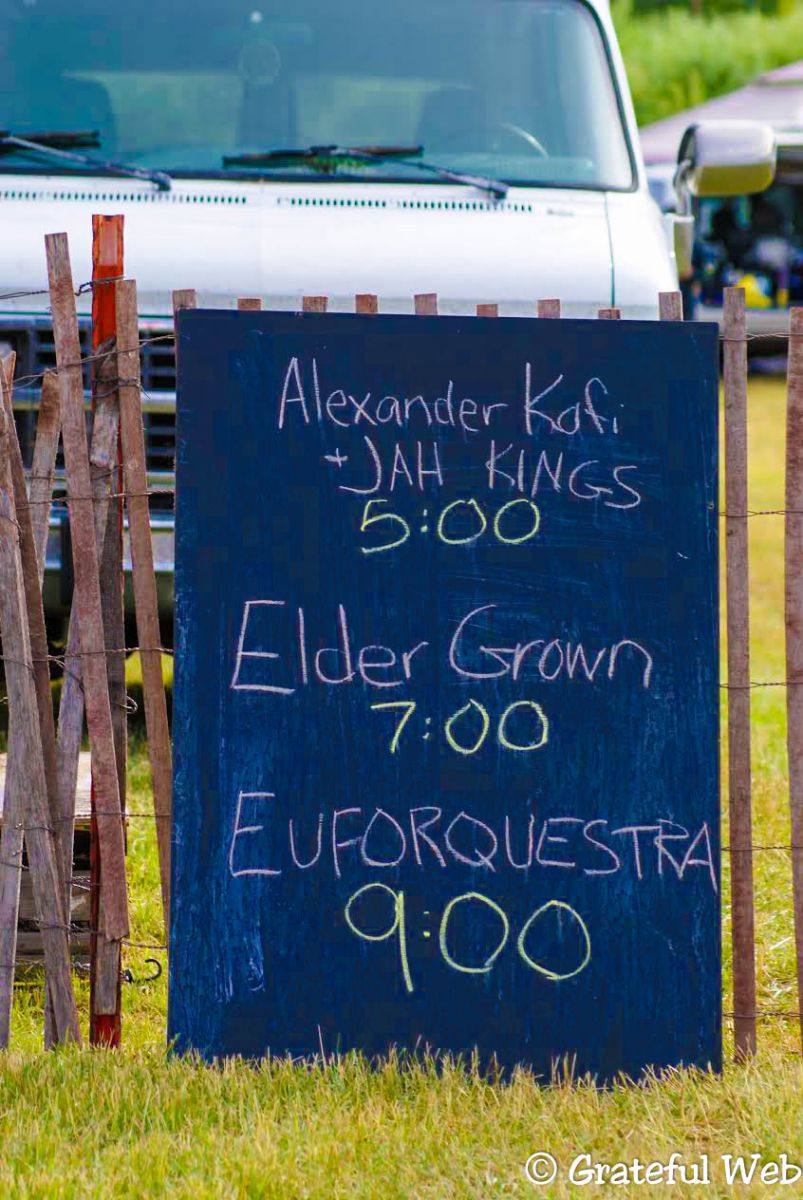 Alexander Kofi
+ JAH KINGS
5:00
Elder Grown
7:00
EUFORQUESTRA
9:00
© Grateful Web